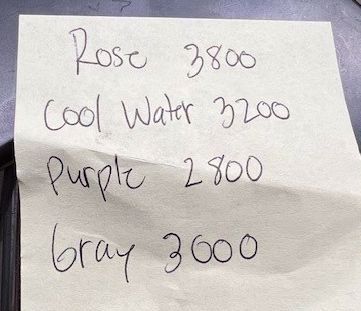 Rose 3800
Cool Water 3200
Purple 2800
Gray 3000